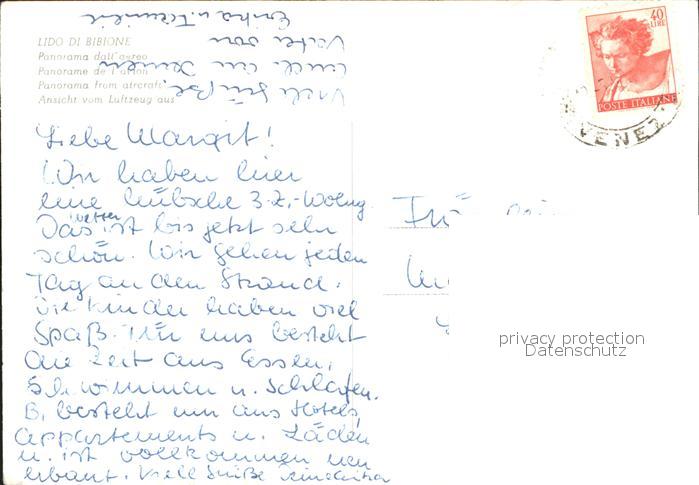 LIDO DI BIBIONE
Panorama dall'aereo
Panorama de l'avion
Panorama from aircraft
Ansicht vom Luftzeug aus
Viele Grüße
auch an Deinen
Vater von
Erika u. Familie
40
LIRE
POSTE ITALIANE
VENEZ
Liebe Margit!
Wir haben hier
eine hübsche 3-Z.-Wohng.
Das Wetter ist bis jetzt sehr
schön. Wir gehen jeden
Tag an den Strand.
Die Kinder haben viel
Spaß. Für uns besteht
die Zeit aus Essen,
Schwimmen u. Schlafen.
B. besteht nur aus Hotels,
Appartements u. Läden
u. ist vollkommen neu
erbaut. Viele Grüße
privacy protection
Datenschutz